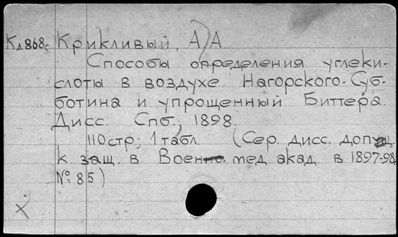 Кл868с Крикливый, А) А
Способы определения углеки-
слоты в воздухе Нагорского-Суб-
ботина и упрощенный Биттера.
Дисс. Спб., 1898.
110стр; 1табл. (Сер. дисс. допущ.
к защ. в Военно мед. акад. в 1897-98
№ 85)